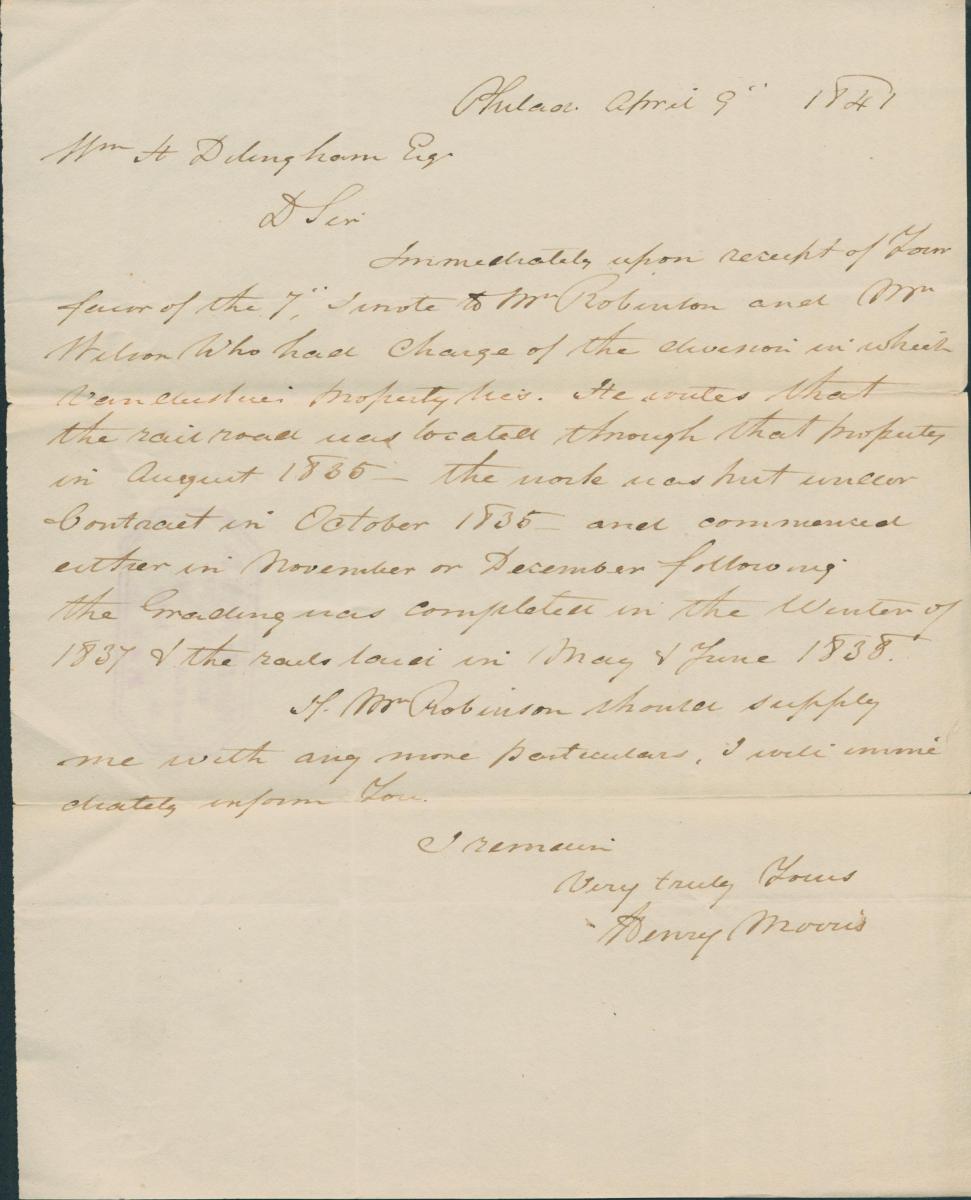 Philada. April 9" 1841
Wm H Dilingham Esqr
D Sir
Immediately upon receipt of Your
favor of the 7", I wrote to Mr Robinson and Mr
Wilson Who had Charge of the division in which
property lies. He writes that
the railroad was located through that property
in August 1835 — the work was put under
Contract in October 1835 — and commenced
either in November or December following
the Grading was completed in the Winter of
1837 & the rails laid in May & June 1838.
If Mr Robinson should supply
me with any more particulars, I will imme
diately inform You.
I remain
Very truly Yours
Henry Morris